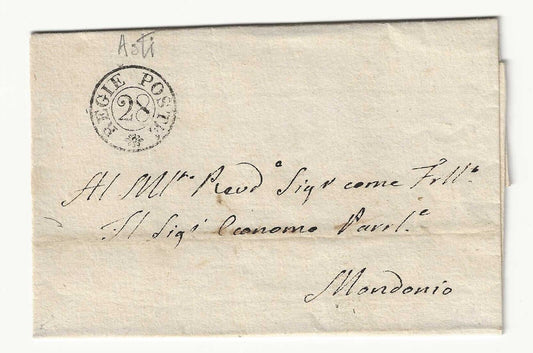 Asti
REGIE POSTE
28
Al Mlto Revdo Sigr come Frllo
Il Sigr Economo Parrle
Mondonio